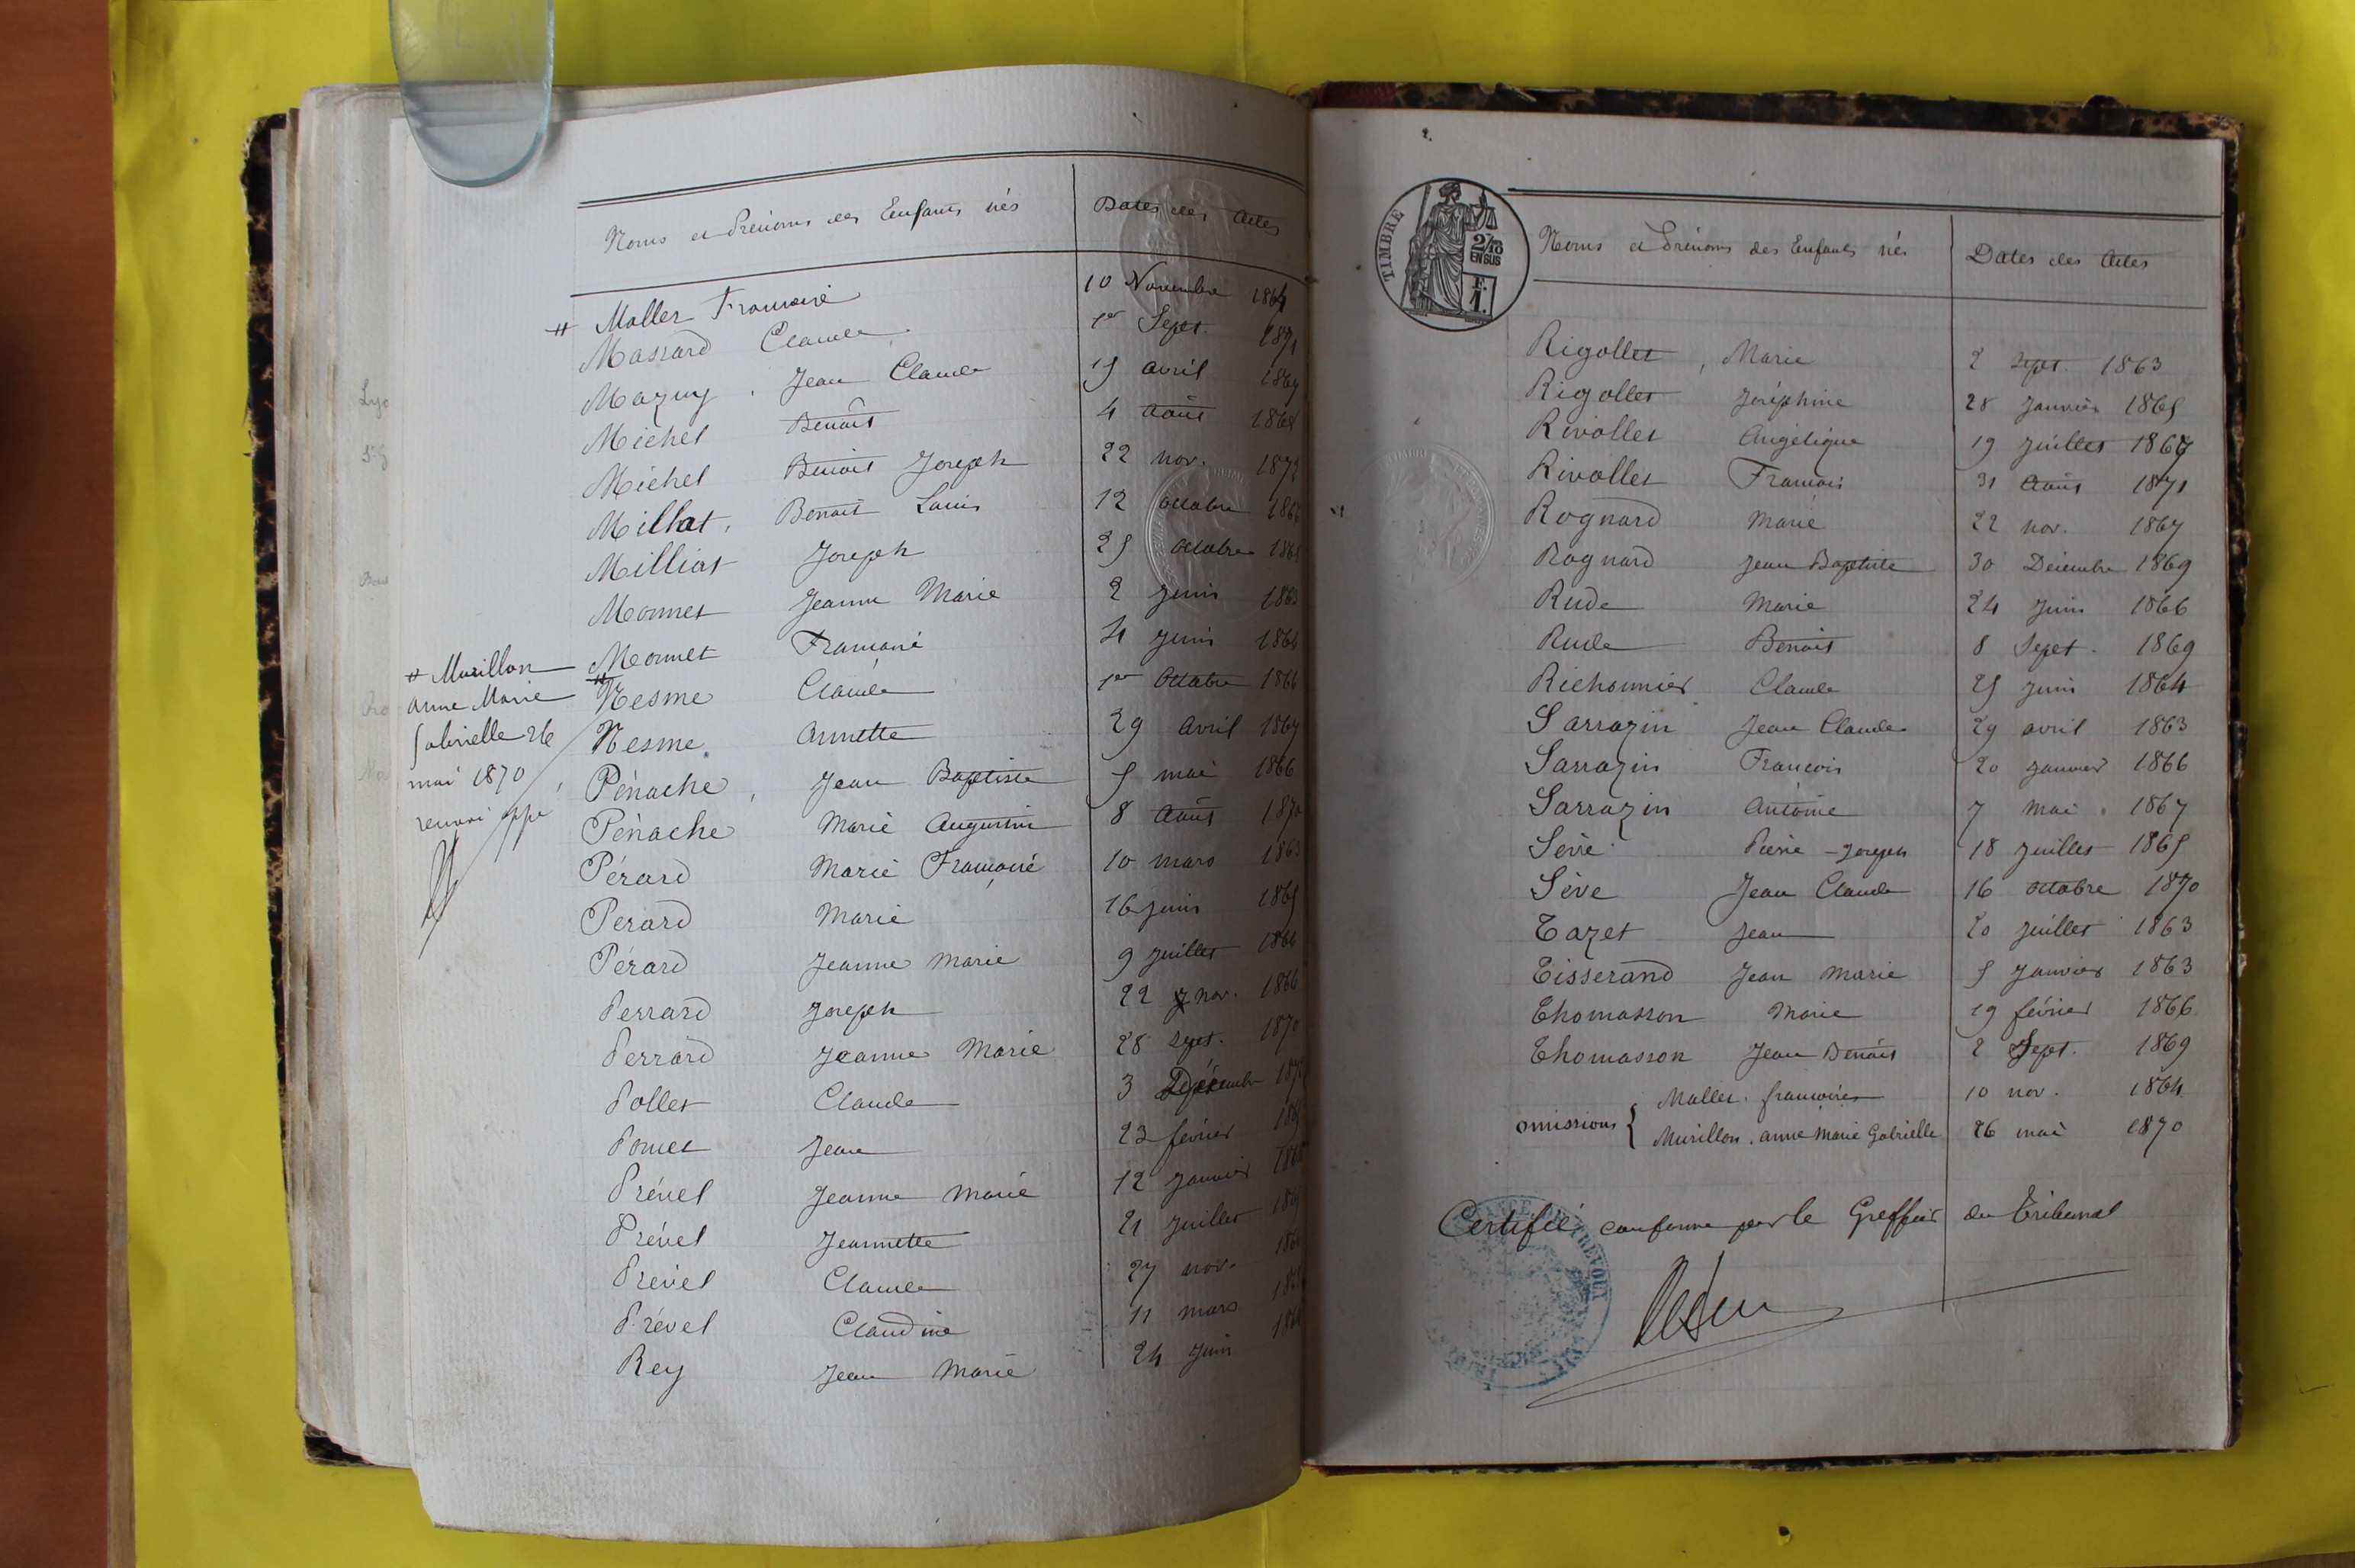 Noms et Prénoms des Enfants nés Dates des Actes
# Mallet Françoise 10 Novembre 1864
Massard Claude 1er Sept. 1871
Mazuy, Jean Claude 15 avril 1869
Michel Benoît 4 Août 1868
Michel Benoît Joseph 22 nov. 1872
Millat, Benoît Louis 12 octobre
Milliat Joseph 25 octobre 1865
Monnet Jeanne Marie 2 Juin 1863
Monnet Françoise 4 Juin 1864
Nesme Claude 1er Octobre 1866
Nesme Annette 29 Avril 1869
Pénache, Jean Baptiste 5 mai 1866
Pénache Marie Augustin 8 Août 1870
Pérard Marie Françoise 10 mars 1863
Pérard Marie 16 juin 1865
Pérard Jeanne Marie 9 Juillet 1866
Perrard Joseph 22 nov. 1866
Perrard Jeanne Marie 28 sept. 1870
Pollet Claude 3 Décembre
Pomet Jean 23 février
Prével Jeanne Marie 12 Janvier
Prével Jeannette 21 Juillet
Prével Claude 27 nov.
Prével Claudine 11 mars
Rey Jean Marie 24 Juin
# Murillon
anne Marie
Gabrielle 26
mai 1870
renvoi appé
TIMBRE
2/10
EN SUS
F.
1.
Noms et Prénoms des Enfants nés Dates des Actes
Rigollet, Marie 2 Sept. 1863
Rigollet Joséphine 28 Janvier 1865
Rivollet Angélique 19 Juillet 1867
Rivollet François 31 Août 1871
Rognard Marie 22 nov. 1867
Rognard Jean Baptiste 30 Décembre 1869
Rude Marie 24 Juin 1866
Rude Benoît 8 Sept. 1869
Richonnier Claude 25 Juin 1864
Sarrazin Jean Claude 29 avril 1863
Sarrazin François 20 Janvier 1866
Sarrazin Antoine 7 Mai 1867
Sève Pierre-Joseph 18 Juillet 1865
Sève Jean Claude 16 octobre 1870
Tazet Jean 20 Juillet 1863
Tisserand Jean Marie 5 Janvier 1863
Thomasson Marie 19 février 1866
Thomasson Jean Benoît 2 Sept. 1869
omissions { Mallet. françoise 10 nov. 1864
Murillon. anne Marie Gabrielle 26 mai 1870
Certifié conforme par le Greffier du Tribunal